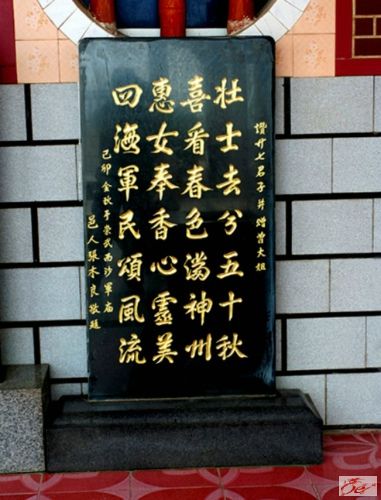 讚廿七君子并贈曾大姐
壯士去兮五十秋
喜看春色滿神州
惠女奉香心靈美
四海軍民頌風流
己卯金秋于崇武西沙軍庙
邑人張水良敬題